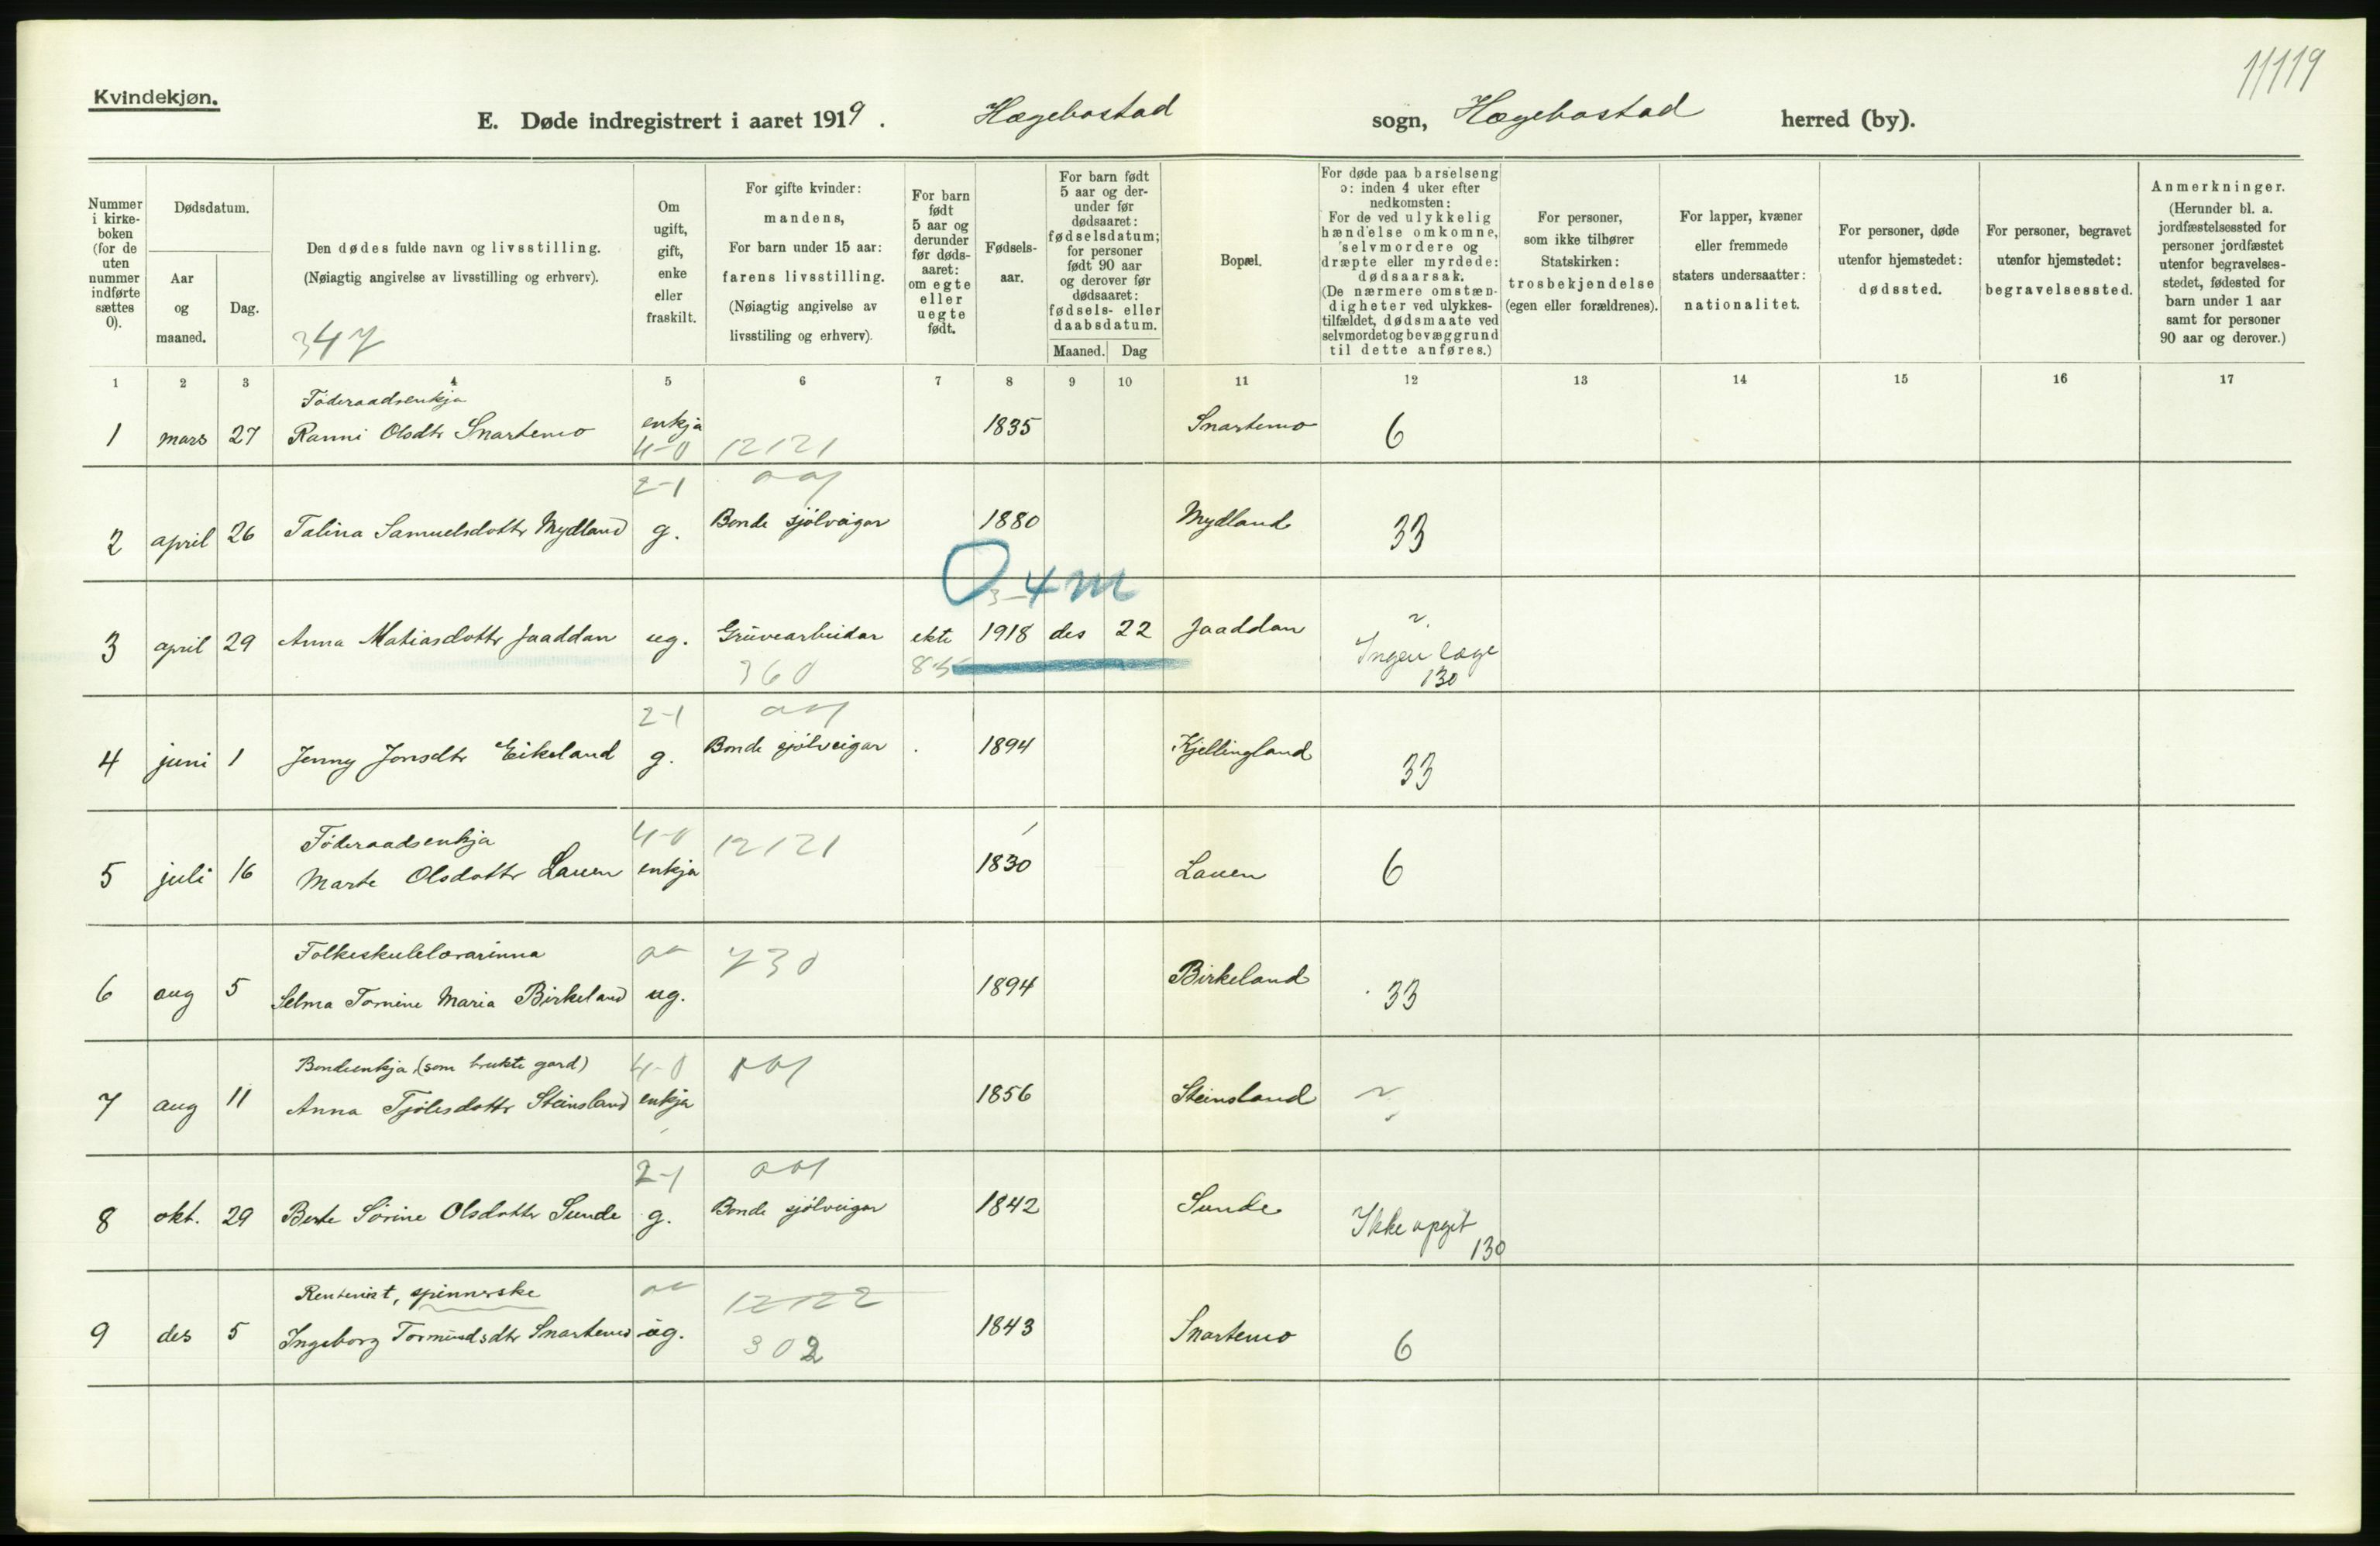 11119
Kvindekjøn.
E. Døde indregistrert i aaret 1919. Hægebostad sogn, Hægebostad herred (by).
Nummer i kirkeboken (for de uten nummer indførte sættes 0).
Dødsdatum.
Aar og maaned.
Dag.
Den dødes fulde navn og livsstilling.
(Nøiagtig angivelse av livsstilling og erhverv).
347
Om ugift, gift, enke eller fraskilt.
For gifte kvinder: mandens,
For barn under 15 aar: farens livsstilling.
(Nøiagtig angivelse av livsstiling og erhverv).
For barn født 5 aar og derunder før dødsaaret: om egte eller uegte født.
Fødselsaar.
For barn født 5 aar og derunder før dødsaaret: fødselsdatum; for personer født 90 aar og derover før dødsaaret: fødsels- eller daabsdatum.
Maaned. Dag
Bopæl.
For døde paa barselseng ɔ: inden 4 uker efter nedkomsten:
For de ved ulykkelig hændelse omkomne, selvmordere og dræpte eller myrdede: dødsaarsak.
(De nærmere omstændigheter ved ulykkestilfældet, dødsmaate ved selvmordet og bevæggrund til dette anføres.)
For personer, som ikke tilhører Statskirken: trosbekjendelse (egen eller forældrenes).
For lapper, kvæner eller fremmede staters undersaatter: nationalitet.
For personer, døde utenfor hjemstedet: dødssted.
For personer, begravet utenfor hjemstedet: begravelsessted.
Anmerkninger.
(Herunder bl. a. jordfæstelsessted for personer jordfæstet utenfor begravelsesstedet, fødested for barn under 1 aar samt for personer 90 aar og derover.)
1 2 3 4 5 6 7 8 9 10 11 12 13 14 15 16 17
Föderaadsenkja
1 mars 27 Ranni Olsdtr Snartemo enkja 1835 Snartemo 6
4-0 12121
2-1
2 april 26 Talina Samuelsdottr Mydland g. Bonde sjölveigar 1880 Mydland 33
0 3-4 m
3 april 29 Anna Matiasdottr Jaaddan ug. Grüvearbeidar ekte 1918 des 22 Jaaddan Ingen læge
360 130
2-1
4 juni 1 Jenny Jonsdtr Eikeland g. Bonde sjölveigar 1894 Kjellingland 33
Föderaadsenkja 4-0 12121
5 juli 16 Marte Olsdottr Lauen enkja 1830 Lauen 6
Folkeskulelærarinna 730
6 aug 5 Selma Tomine Maria Birkeland ug. 1894 Birkeland 33
Bondeenkja (som brukte gard) 4-0
7 aug 11 Anna Tjölesdottr Steinsland enkja 1856 Steinsland
2-1
8 okt. 29 Berte Sörine Olsdottr Sunde g. Bonde sjölveigar 1842 Sunde Ikke opgit
130
Rentenist, spinnerske 12122
9 des 5 Ingeborg Tormundsdtr Snartemo ug. 302 1843 Snartemo 6